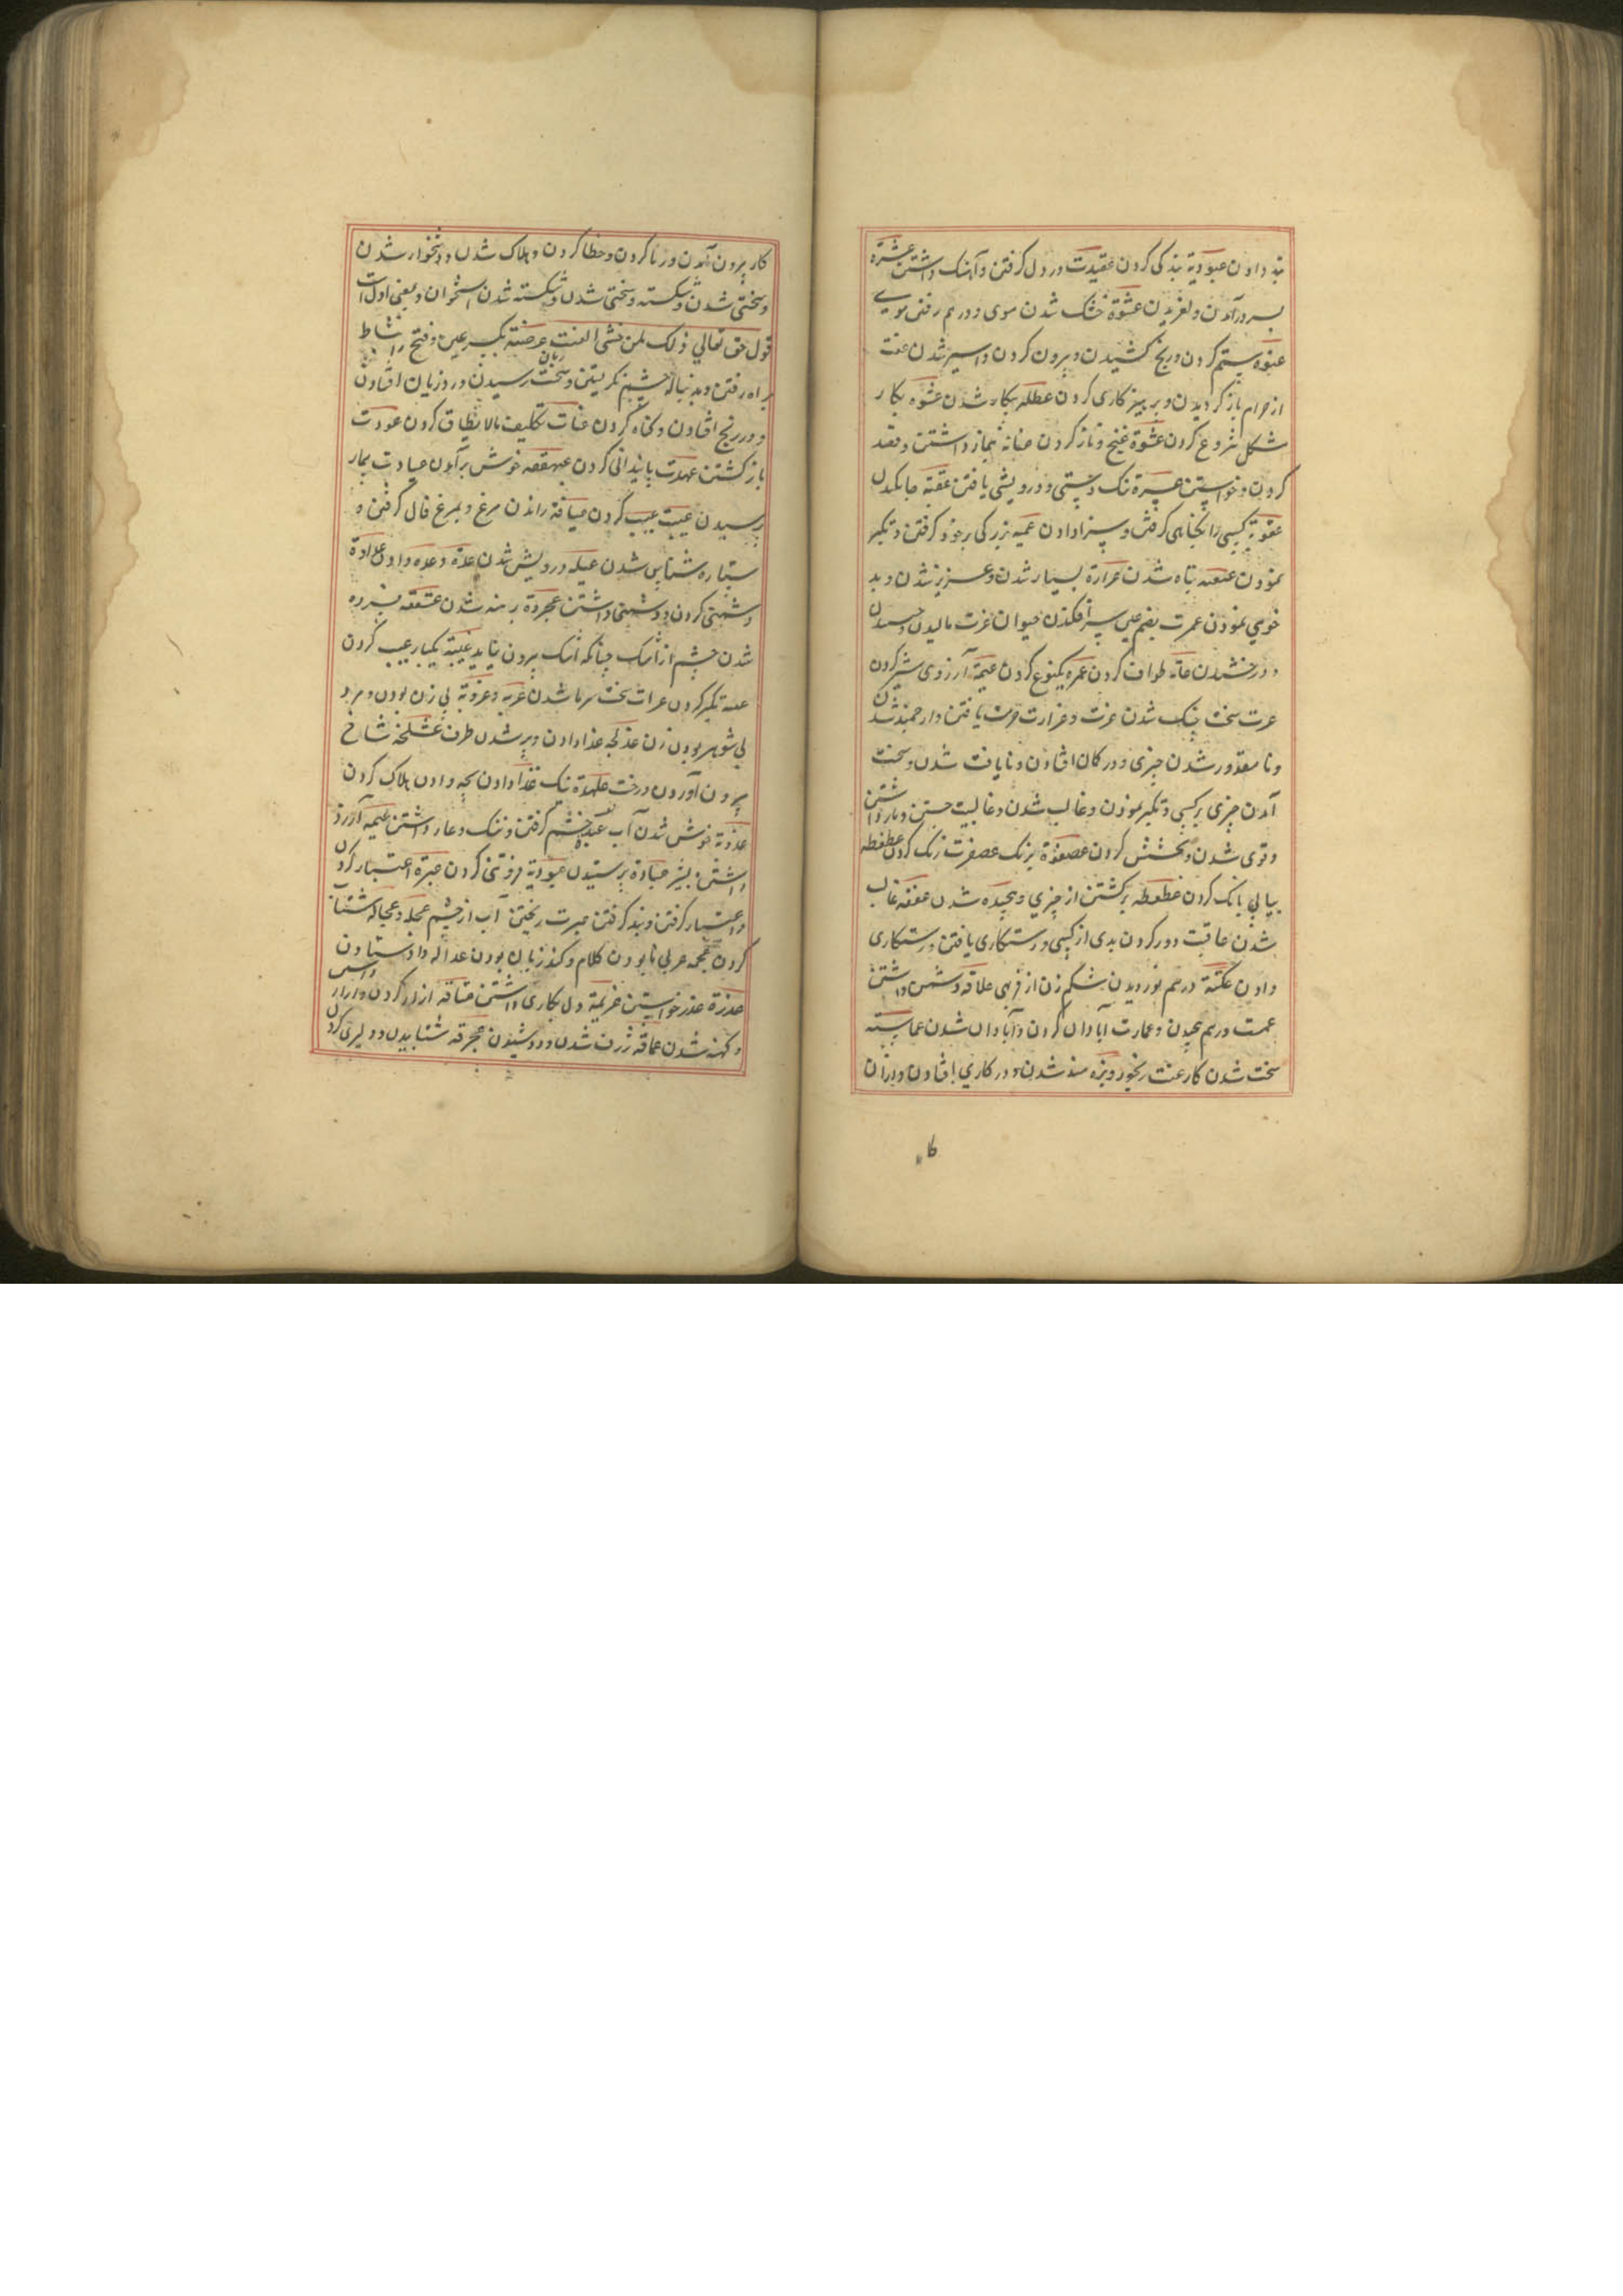 بند دادن عبودیة بندکی کردن عقیدت در دل کرفتن و آهنک داشتن عشرة
بسر درآمدن و لغزیدن عشوة خشک شدن موی و درهم رفتن موی
عنوه ستم کردن و رنج کشیدن و بیرون کردن و اسیر شدن عفت
از حرام باز کردیدن و پرهیزکاری کردن عطله بیکار شدن عشوه بکار
مشکل شروع کردن عشوة غنج و ناز کردن عنایة نیاز داشتن و قصد
کردن و خواستن عسیرة تنک دستی و درویشی یافتن عقبة
عقوبة کسی را بکناهی کرفتن و سزا دادن عمیة بزرکی بر خود کرفتن و تکبر
نمودن تباه شدن عزازة بسیار شدن و عزیز شدن و بد
خویی نمودن عرت بضم عین سرافکندن حیوان عرت مالیدن
و درخشیدن طواف کردن عمره یکنوع کردن عیمة آرزوی شیر کردن
عرت سخت چنک شدن عزت و عزازت قوت یافتن و ارجمند شدن
و نا مقدور شدن چیزی و در کان افتادن و نایافت شدن و سخت
آمدن چیزی بر کسی و تکبر نمودن و غالب شدن و غالبیت جستن و باز داشتن
و قوی شدن و بخشش کردن عصفرة برنک عصفرت رنک کردن عطعطه
پیاپی بانک کردن عطعطه برکشتن از چیزی و پیچیده شدن غالب
شدن عاقبت دور کردن بدی از کسی و رستکاری یافتن و رستکاری
دادن عکنة درهم نوردیدن شکم زن از فربهی علاقه دشمن داشتن
عمت درهم پیچیدن و عمارت آبادان کردن و آبادان شدن
سخت شدن کار عنت رنجور و بزه مند شدن و در کاری افتادن و از آن
کا
کار بیرون آمدن و زنا کردن و خطا کردن و هلاک شدن و دشخوار شدن
و سختی شدن و شکسته و سختی شدن و شکسته شدن استخوان و بمعنی اول است
قول حق تعالی ذلک لمن خشی العنت عرضنه بکسر عین و فتح را نشاط
براه رفتن و بدنباله چشم نکریستن و سخت رسیدن و در زیان افتادن
و در رنج افتادن و کناه کردن عنات تکلیف مالا یطاق کردن عودت
باز کشتن عهدت پایندانی کردن خوش برآمدن عیادت بیمار
پرسیدن عیبت عیب کردن عیافة راندن مرغ و بمرغ فال کرفتن و
ستاره شناس شدن عیله درویش شدن عدة وعده دادن عداوة
دشمنی کردن و دشمنی داشتن عجردة برهنه شدن
شدن چشم از اشک چنانکه اشک بیرون نیاید عیبة یکبار عیب کردن
تکبر کردن عرات سخت سرما شدن عزبه و عزوبة بی زن بودن و مرد
بی شوهر بودن زن عذلجه غذا دادن و پر شدن ظرف شاخ
بیرون آوردن درخت علهدة نیک غذا دادن بچه و ادن هلاک کردن
عذوبة خوش شدن آب خشم کرفتن و ننک و عار داشتن عیمه آرزو
داشتن بشیر عبادة پرستیدن عبودیة فروتنی کردن عبرة اعتبار کردن
و اعتبار کرفتن و پند کرفتن عبرت ریختن آب از چشم عجله و عجاله شتاب
کردن عجمه عربی نابودن کلام و کند زبان بودن عداله داد ستادن
عذرة عذر خواستن عزیمة دل بکاری داشتن عتاقه ازاد کردن و ازاد
و کهنه شدن عماقه ژرف شدن و دوشیدن عجرفه شتابیدن و دلیری کردن